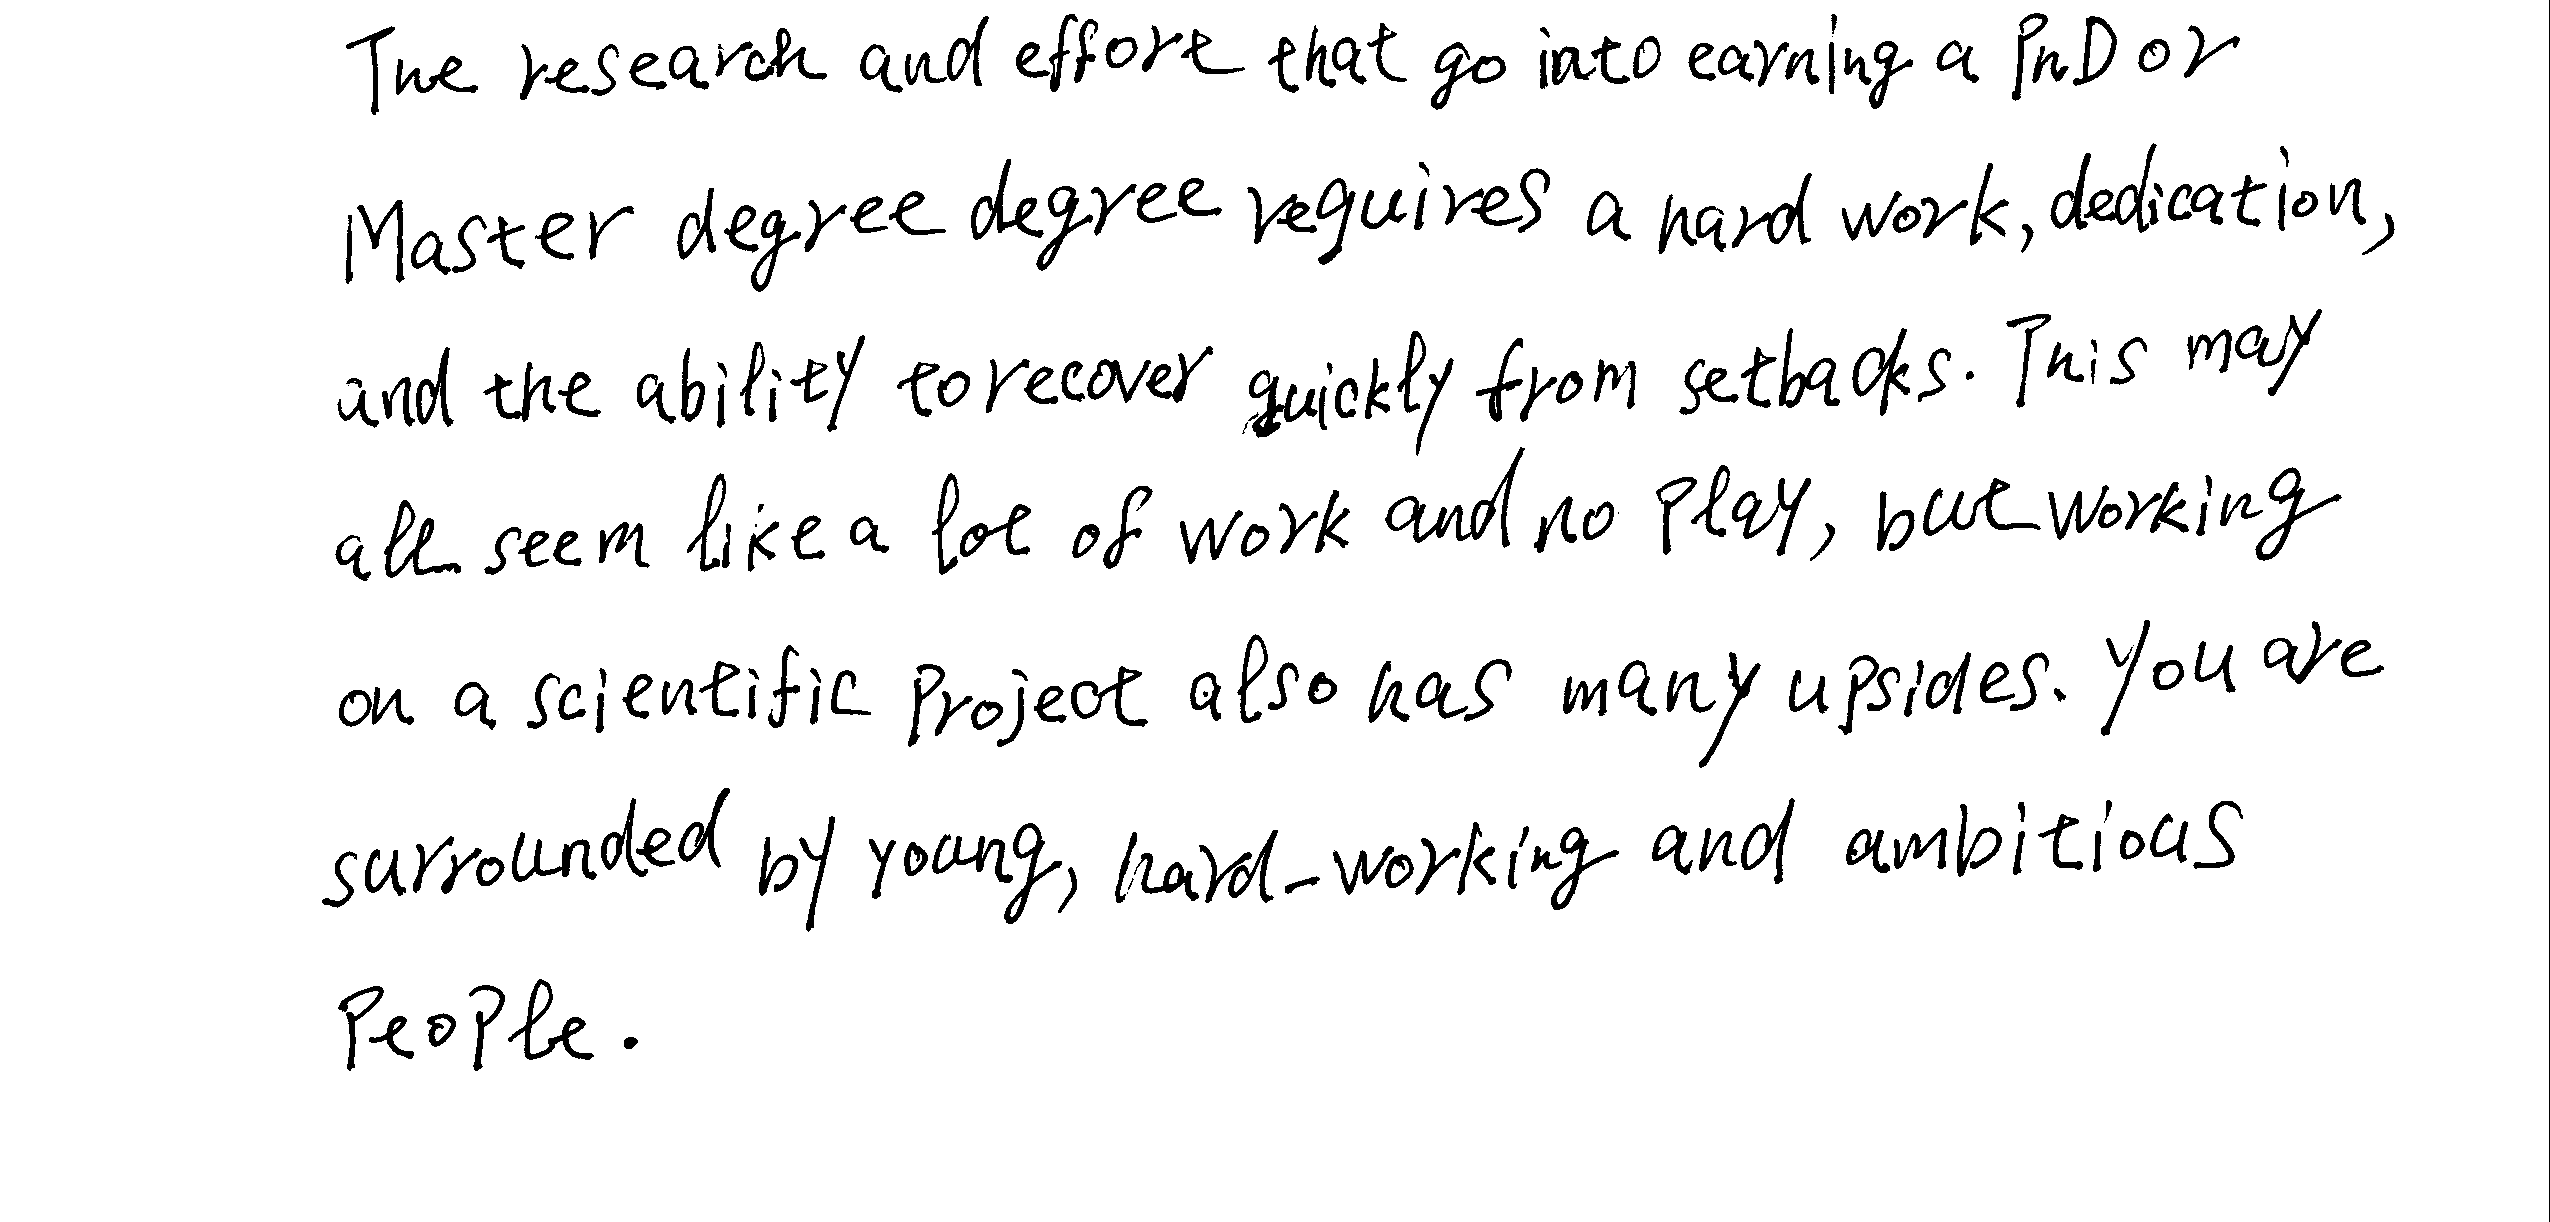 The research and effort that go into earning a PhD or
Master degree degree requires a hard work, dedication,
and the ability to recover quickly from setbacks. This may
all seem like a lot of work and no play, but working
on a scientific project also has many upsides. You are
surrounded by young, hard-working and ambitious
people.